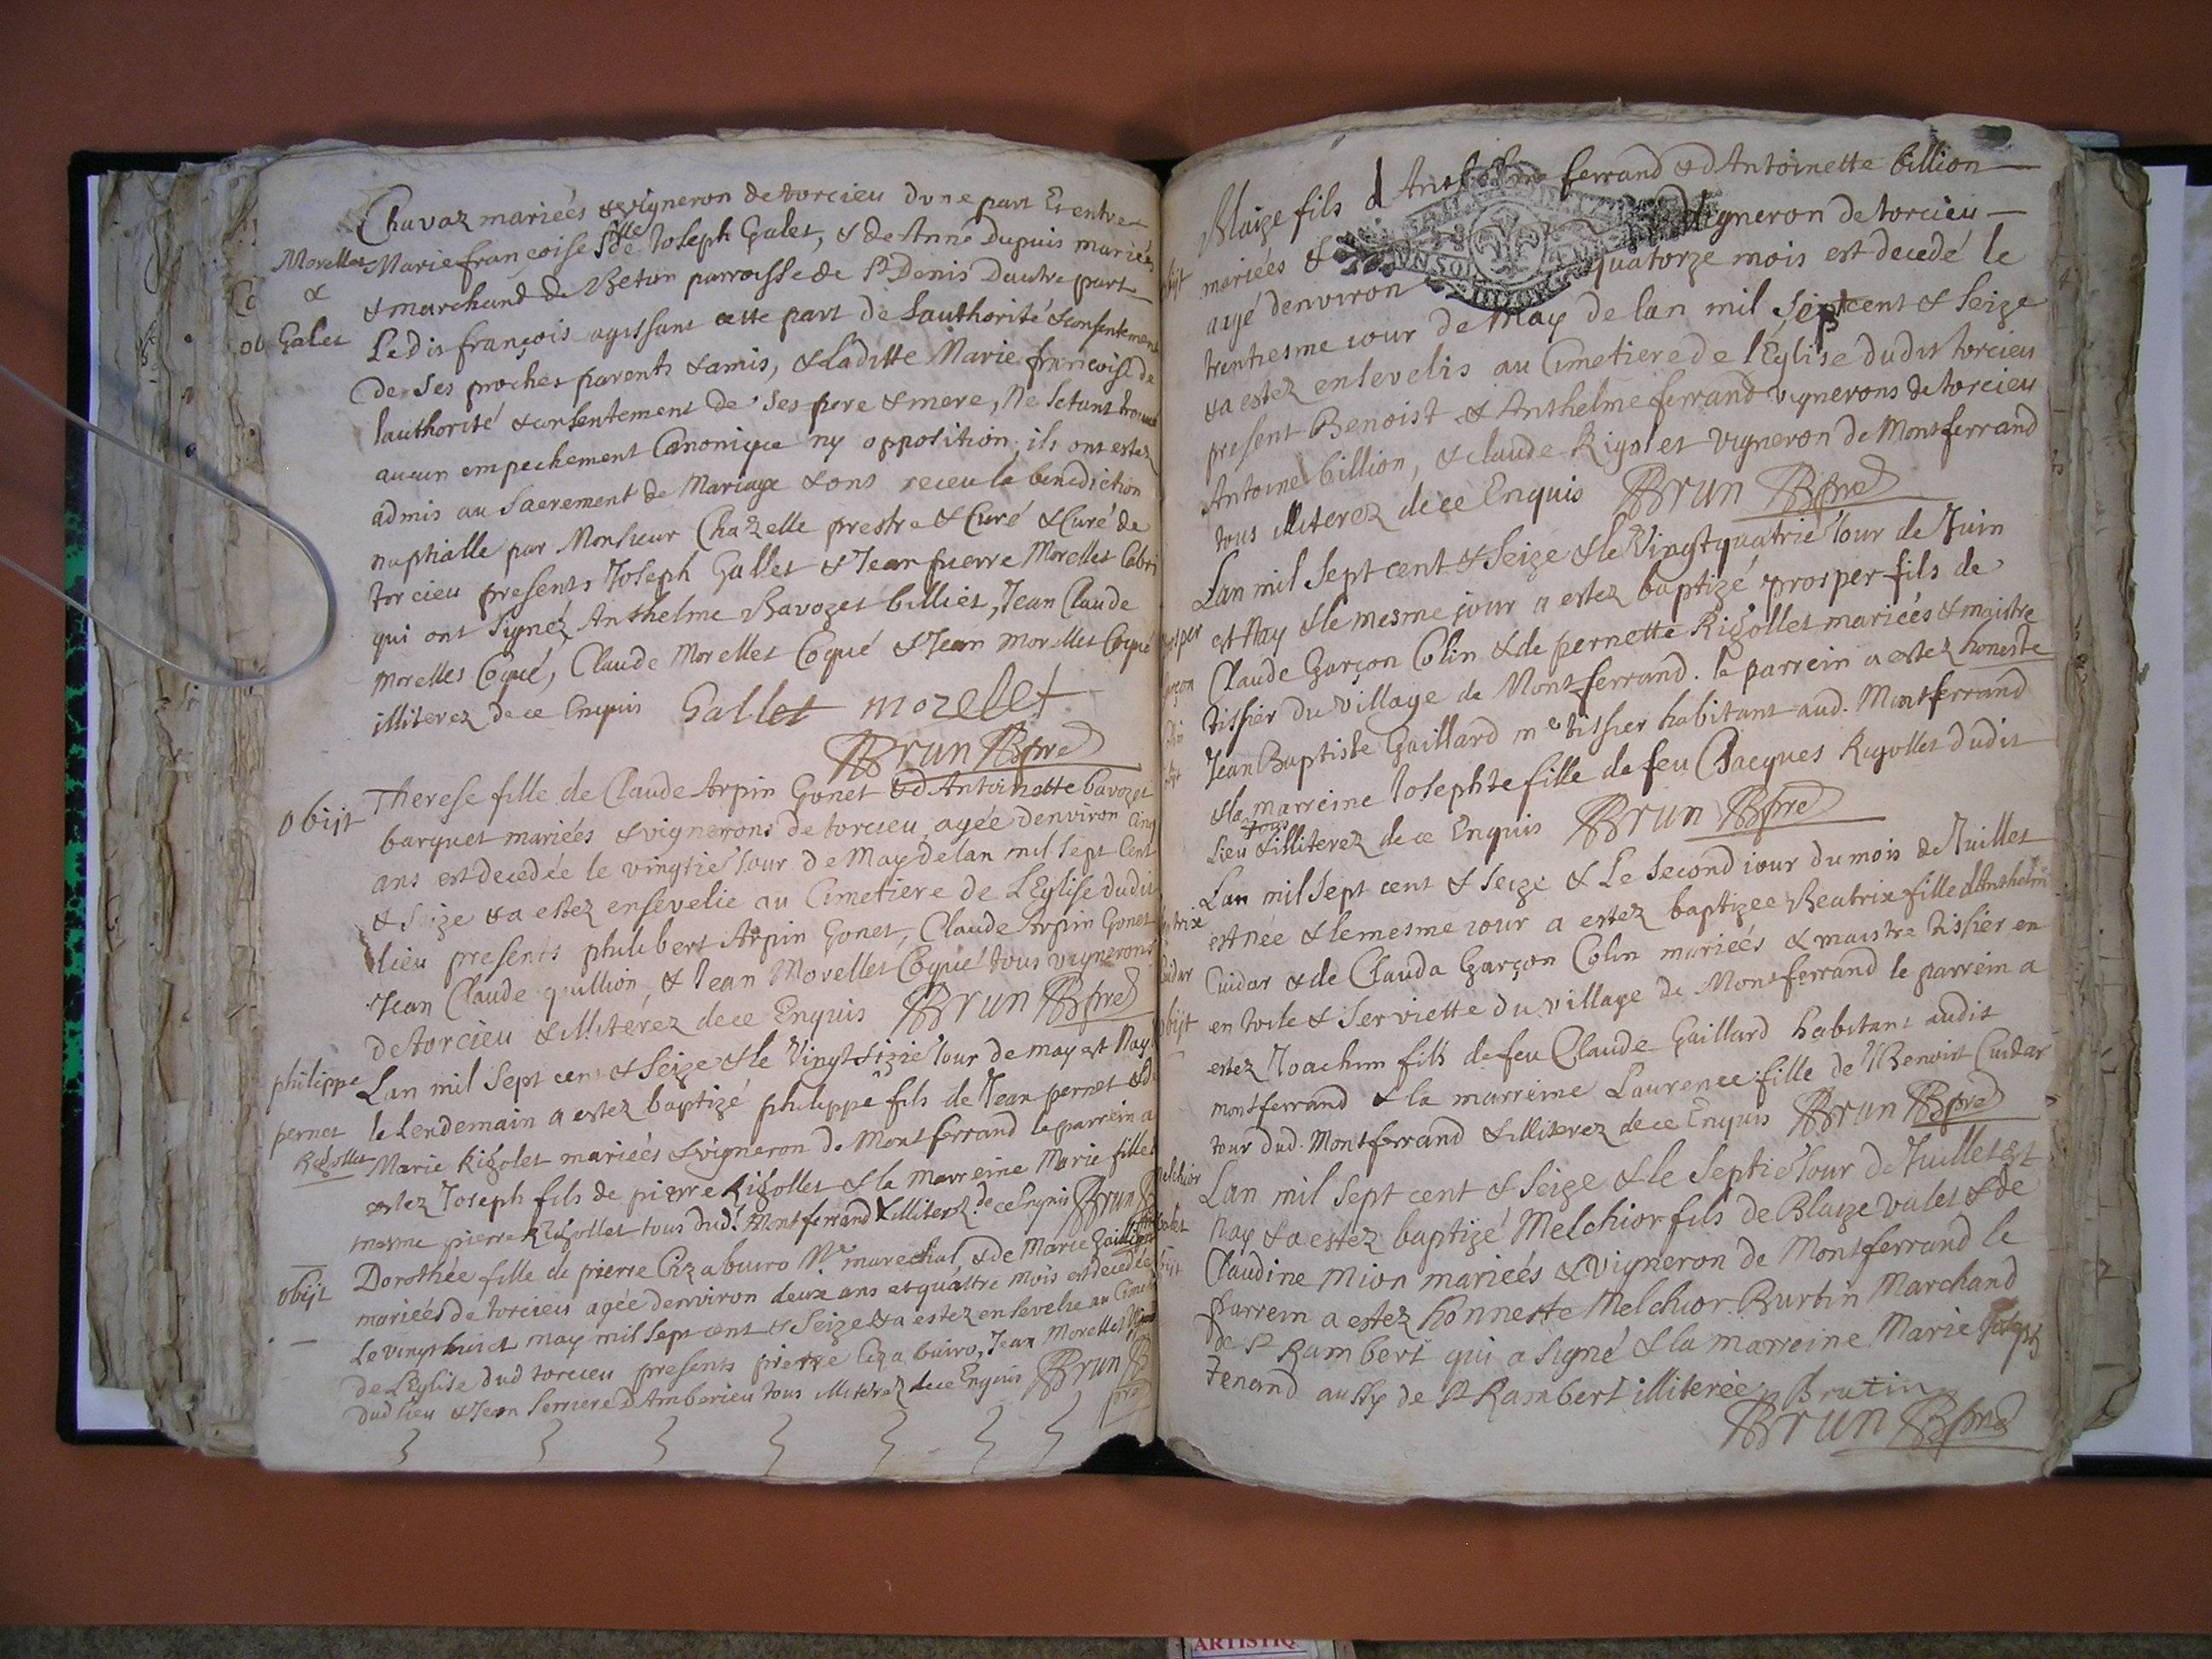 Chavaz mariées & vigneron de torcieu dune part Et entre
Morellet Marie françoise fille de Joseph Galet, & de Anne Dupuis mariés
& & marchand de Betton parroisse de St Denis Dautre part
Galet Ledit françois agissant cette part de Lauthorité & consentement
de ses proches parents & amis, & Laditte Marie françoise de
lauthorité & consentement de ses pere & mere, Ne setant trouvé
aucun empechement Canonique ny opposition, ils ont estez
admis au Sacrement de Mariage & ont receu la benediction
nuptialle par Monsieur Chazelle prestre & Curé & Curé de
torcieu presents Joseph Gallet & Jean pierre Morellet
qui ont signéz Anthelme Bavozet billiet, Jean Claude
Morellet Coqué, Claude Morellet Coqué & Jean Morellet Coqué
illiterez de ce Enquis Gallet morellet
Brun pre
Obijt Therese fille de Claude Arpin Gonet & d Antoinette bavozet
barquet mariées & vignerons de torcieu agée denviron cinq
ans est decedée le vingtie Jour de May de lan mil Sept Cent
& Seize & a estez ensevelie au Cimetiere de LEglise dudit
lieu presents philibert Arpin Gonet, Claude Arpin Gonet
Jean Claude quillion, & Jean Morellet Coqué tous vignerons
de torcieu & illiterez de ce Enquis Brun pre
philippe Lan mil Sept cent & Seize & le Vingt sizie Jour de may est Nay
pernet le Lendemain a estez baptizé philippe fils de Jean pernet & de
Rigollet Marie Rigolet mariées & vigneron de Montferrand le parrein a
estez Joseph fils de pierre Rigollet & la marreine Marie fille
mesme pierre Rigollet tous dud. Montferrand & illiterez de ce Enquis Brun
obijt Dorothée fille de pierre Ciza buiro Me marechal & de Marie
mariées de torcieu agée denviron deux ans et quattre mois est decedée
Le vingt huict may mil Sept cent & Seize & a estez ensevelie au
de LEglise dud torcieu presents pierre Ciza buiro, Jean Morellet
dud lieu & Jean Serriere d Amberieu tous illiterez de ce Enquis Brun
pre
Blaize fils d Anthelme ferrand & d Antoinette billion
mariées & vigneron de torcieu
aagé denviron quatorze mois est decedé le
trentiesme iour de May de lan mil Sept cent & Seize
& a estez ensevelis au Cimetiere de l'Eglise dudit torcieu
present Benoist & Anthelme ferrand vignerons de torcieu
Antoine billion, & claude Rigolet vigneron de Montferrand
tous illiterez de ce Enquis Brun pre
Lan mil Sept cent & Seize & le Vingt quatrie Jour de Juin
est Nay & le mesme jour a estez baptizé prosper fils de
Claude Garçon Colin & de pernette Rigollet mariées & maistre
tissier du village de Montferrand. le parrein a estez honeste
Jean Baptiste Gaillard me tissier habitant aud. Montferrand
& la marreine Josephte fille de feu Jacques Rigollet dudit
Lieu tous & illiterez de ce Enquis Brun pre
Lan mil Sept cent & Seize & Le Second iour du mois de Juillet
est née & le mesme iour a estez baptizee Beatrix fille d Anthelme
Cuidar & de Clauda Garçon Colin mariées & maistre tissier en
obijt en toile & Serviette du village de Montferrand le parrein a
estez Joachim fils de feu Claude Gaillard habitant audit
montferrand & la marreine Laurence fille de Benoist Cuidar
tour dud. Montferrand & illiterez de ce Enquis Brun pre
Melchior Lan mil Sept cent & Seize & le Septie Jour de Juillet est
Nay & a estez baptizé Melchior fils de Blaize valet & de
Claudine Mion mariées & Vigneron de Montferrand le
parrein a estez honneste Melchior Burtin Marchand
de St Rambert qui a signé & la marreine Marie
tenand aussy de St Rambert illiterée Brutin
Brun pre
ARTISTIQ